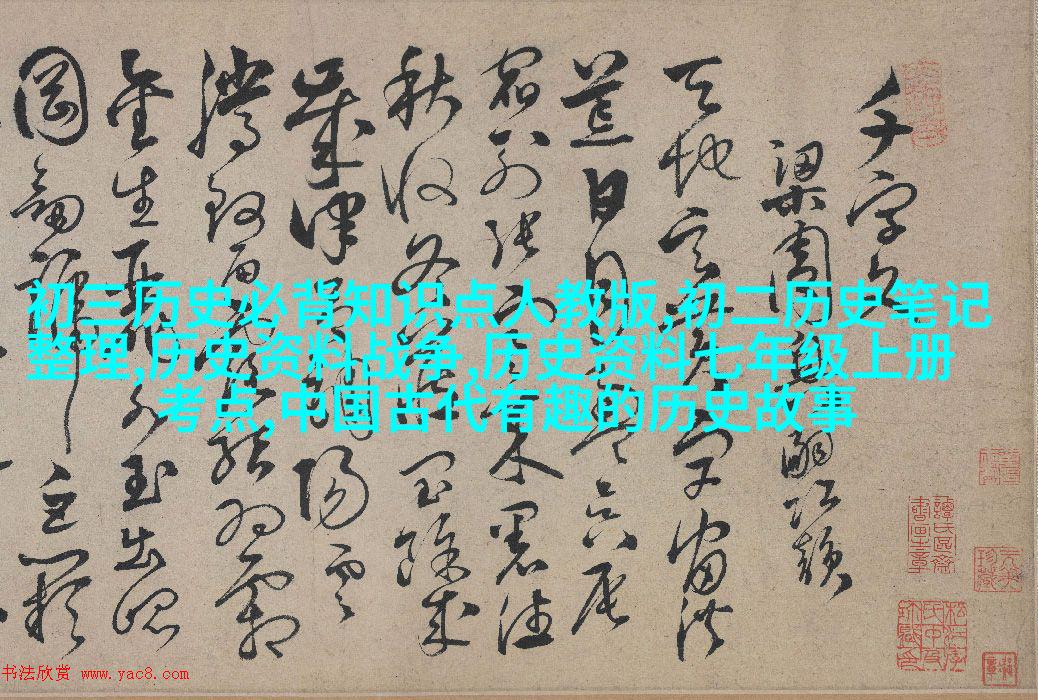 初三历史必背知识点人教版,初二历史笔记
整理,历史资料战争,历史资料七年级上册
考点,中国古代有趣的历史故事
千字文
梁周興嗣次韻
天地玄黃宇宙洪
荒日月盈昃辰
宿列張寒來暑往
秋收冬藏閏餘成
歲律呂調陽雲
騰致雨露結為霜
金生麗水玉出崑
岡劍號巨闕
书法欣赏 www.yac8.com